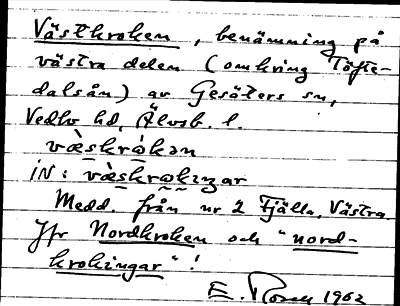 Västkroken, benämning på
västra delen (omkring Töfte-
dalsån) av Gesäters sn,
Vedbo hd, Älvsb. l.
væskrokən
iN: væskrokıŋar
Medd. från nr 2 Fjälla, Västra
Jfr Nordkroken och "nord-
krokingar"!
E. 1962